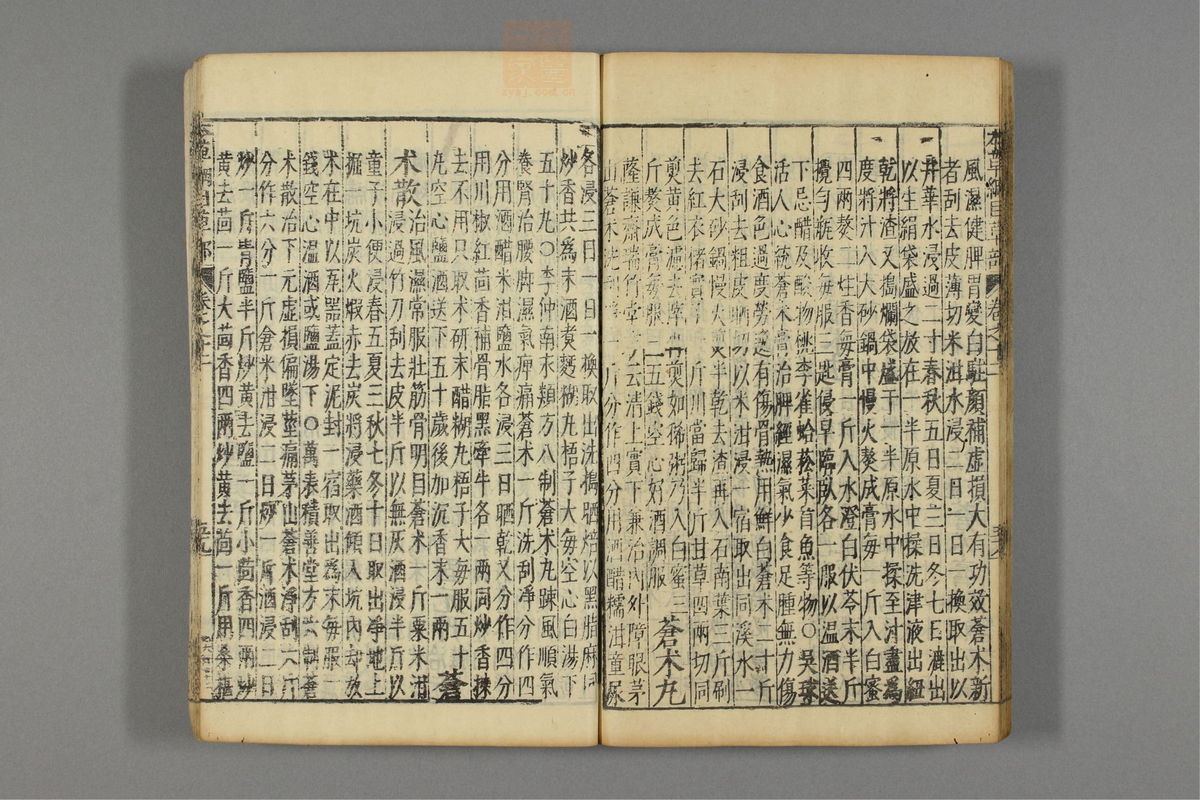 風濕健脾胃變白駐顏補虛損大有功效蒼术新
者刮去皮薄切米泔水浸二日一日一換取出以
井華水浸過二寸春秋五日夏三日冬七日漉出
以生絹袋盛之放在一半原水中揉洗津液出紐
乾將渣又搗爛袋盛于一半原水中揉至汁盡為
度將汁入大砂鍋中慢火熬成膏每一斤入白蜜
四兩熬二炷香每膏一斤入水澄白伏苓末半斤
攪勻瓶收每服三匙侵早臨臥各一服以溫酒送
下忌醋及酸物桃李雀蛤菘菜首魚等物○吳球
活人心統蒼术膏治脾經濕氣少食足腫無力傷
食酒色過度勞逸有傷骨熱用鮮白蒼术二十斤
浸刮去粗皮晒切以米泔浸一宿取出同溪水一
石大砂鍋慢火煎半乾去渣再入石南葉三斤刷
去紅衣楮實子一斤川當歸半斤甘草四兩切同
煎黃色濾去滓再煎如稀粥乃入白蜜三
斤熬成膏每服三五錢空心好酒調服 蒼术丸
薩謙齋瑞竹堂方云清上實下兼治內外障眼茅
山蒼术洗刮淨一斤分作四分用酒醋糯泔童尿
各浸三日一日一換取出洗搗晒焙以黑脂麻同
炒香共為末酒煮麪糊丸梧子大每空心白湯下
五十丸○李仲南永類方八制蒼术丸踈風順氣
養腎治腰脚濕氣痺痛蒼术一斤洗刮淨分作四
分用酒醋米泔鹽水各浸三日晒乾又分作四分
用川椒紅茴香補骨脂黑牽牛各一兩同炒香揀
去不用只取术研末醋糊丸梧子大每服五十
丸空心鹽酒送下五十歲後加沉香末一兩 蒼
术散治風濕常服壯筋骨明目蒼术一斤粟米泔
浸過竹刀刮去皮半斤以無灰酒浸半斤以
童子小便浸春五夏三秋七冬十日取出淨地上
掘一坑炭火煆赤去炭將浸藥酒傾入坑內却放
术在中以瓦器蓋定泥封一宿取出為末每服一
錢空心溫酒或鹽湯下○萬表積善堂方六制蒼
术散治下元虛損偏墜莖痛茅山蒼术淨刮六斤
分作六分一斤倉米泔浸二日炒一斤酒浸二日
炒一斤青鹽半斤炒黃去鹽一斤小茴香四兩炒
黃去茴一斤大茴香四兩炒黃去茴一斤用桑椹